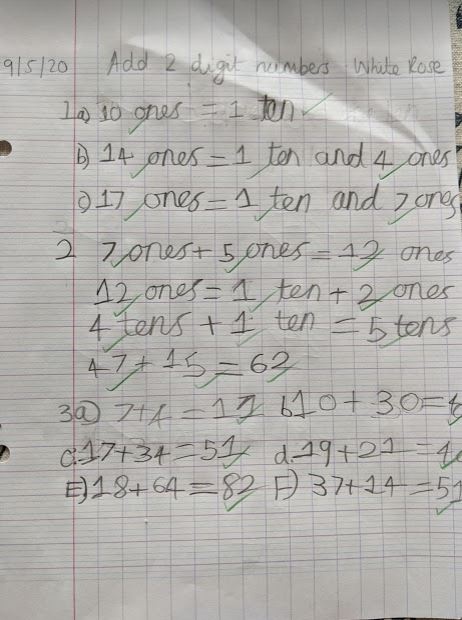 9/5/20 Add 2 digit numbers White Rose
1a) 10 ones = 1 ten
b) 14 ones = 1 ten and 4 ones
c) 17 ones = 1 ten and 7 ones
2 7 ones + 5 ones = 12 ones
12 ones = 1 ten + 2 ones
4 tens + 1 ten = 5 tens
47 + 15 = 62
3a) 7+4 = 11 b 10 + 30 = 4
c. 17+34 = 51 d. 19+21 = 40
E) 18+64 = 82 F) 37+14 = 51